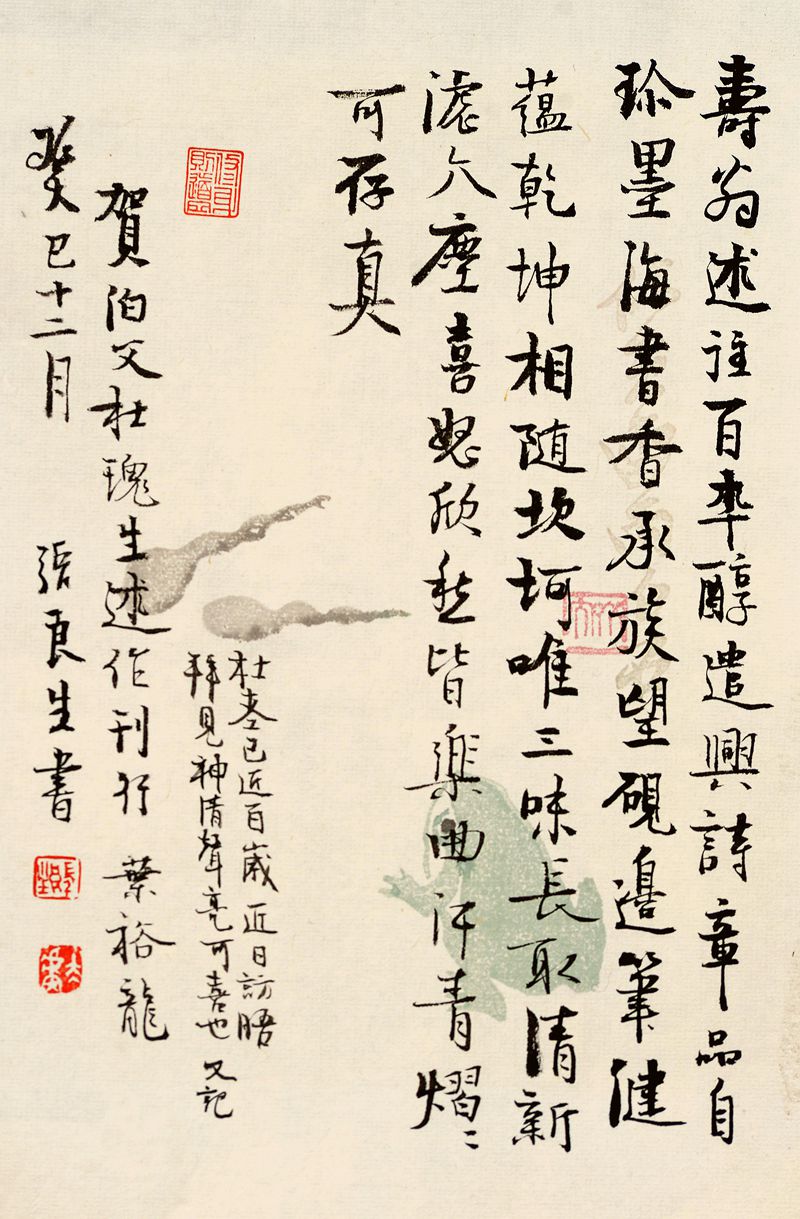 壽翁述往百年醇遣興詩章品自
珍墨海書香承族望硯邊筆健
蘊乾坤相随坎坷唯三味長取清新
濾六塵喜怒欣愁皆樂曲汗青熠〻
可存真
賀伯父杜瑰生述作刊行 葉裕龍
癸巳十二月 張良生書
杜老已近百歲近日訪晤
拜見神清聲亮可喜也 又記